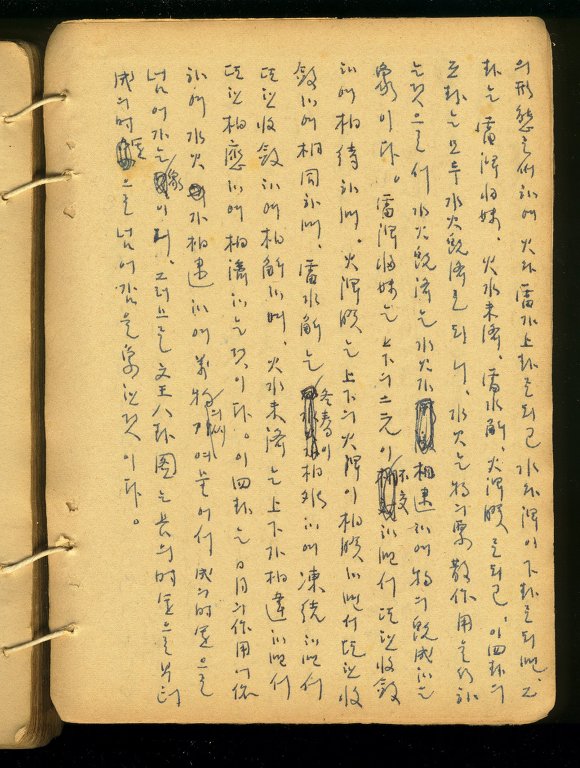 의 形態를 作하여 火와 雷가 上卦를 되고 水와 澤이 下卦를 되며, 그
卦는 雷澤歸妹, 火水未濟, 雷水解, 火澤睽를 되고, 이 四卦의
互卦는 모두 水火旣濟를 되니, 水火는 物의 聚散作用을 行하
는 것으로서 水火旣濟는 水火가 相逮하여 物의 旣成하는
象이다。雷澤歸妹는 上下의 二元이 不交하면서 또한 收斂
하여 相待하며, 火澤睽는 上下의 火澤이 相睽하면서 또한 收
斂하여 相同하며, 雷水解는 冬春이 하여 凍結하면서
또한 收斂하여 相解하며, 火水未濟는 上下가 相違하면서
또한 相應하여 相濟하는 것이다。이 四卦는 日月의 作用에 依
하여 水火가 相逮하여 萬物이 여물어서 成의 時運으로
넘어가는 象이니, 그러므로 文王八卦圖는 長의 時運으로부터
成의 時運으로 넘어감을 象한 것이다。